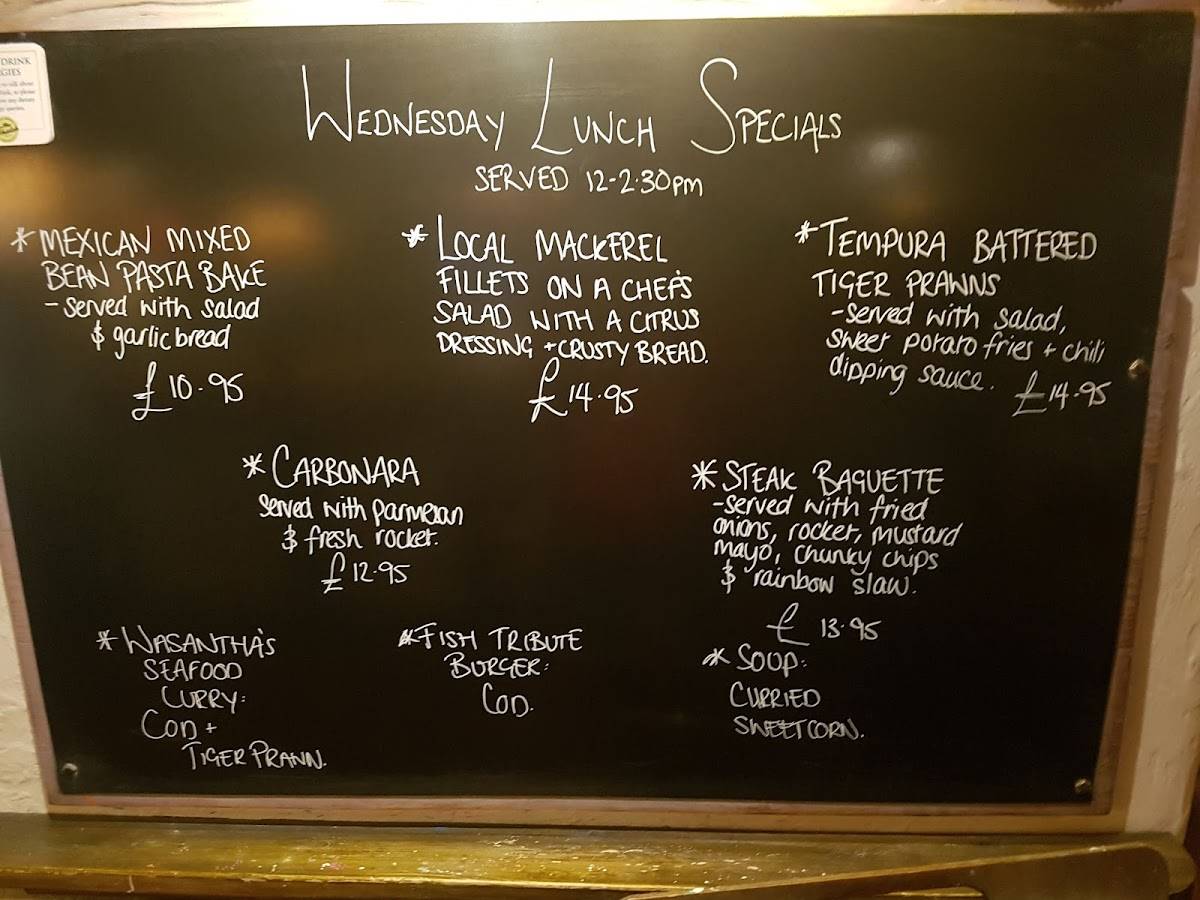 DRINK
GIES
WEDNESDAY LUNCH SPECIALS
SERVED 12-2.30pm
* MEXICAN MIXED
BEAN PASTA BAKE
- served with salad
& garlic bread
£10.95
* LOCAL MACKEREL
FILLETS ON A CHEF'S
SALAD WITH A CITRUS
DRESSING + CRUSTY BREAD.
£14.95
* TEMPURA BATTERED
TIGER PRAWNS
- served with salad,
sweet potato fries + chili
dipping sauce. £14.95
* CARBONARA
served with parmesan
& fresh rocket.
£12.95
* STEAK BAGUETTE
- served with fried
onions, rocket, mustard
mayo, chunky chips
& rainbow slaw.
£ 13.95
* WASANTHA'S
SEAFOOD
CURRY:
COD +
TIGER PRAWN.
* FISH TRIBUTE
BURGER:
COD.
* SOUP:
CURRIED
SWEETCORN.